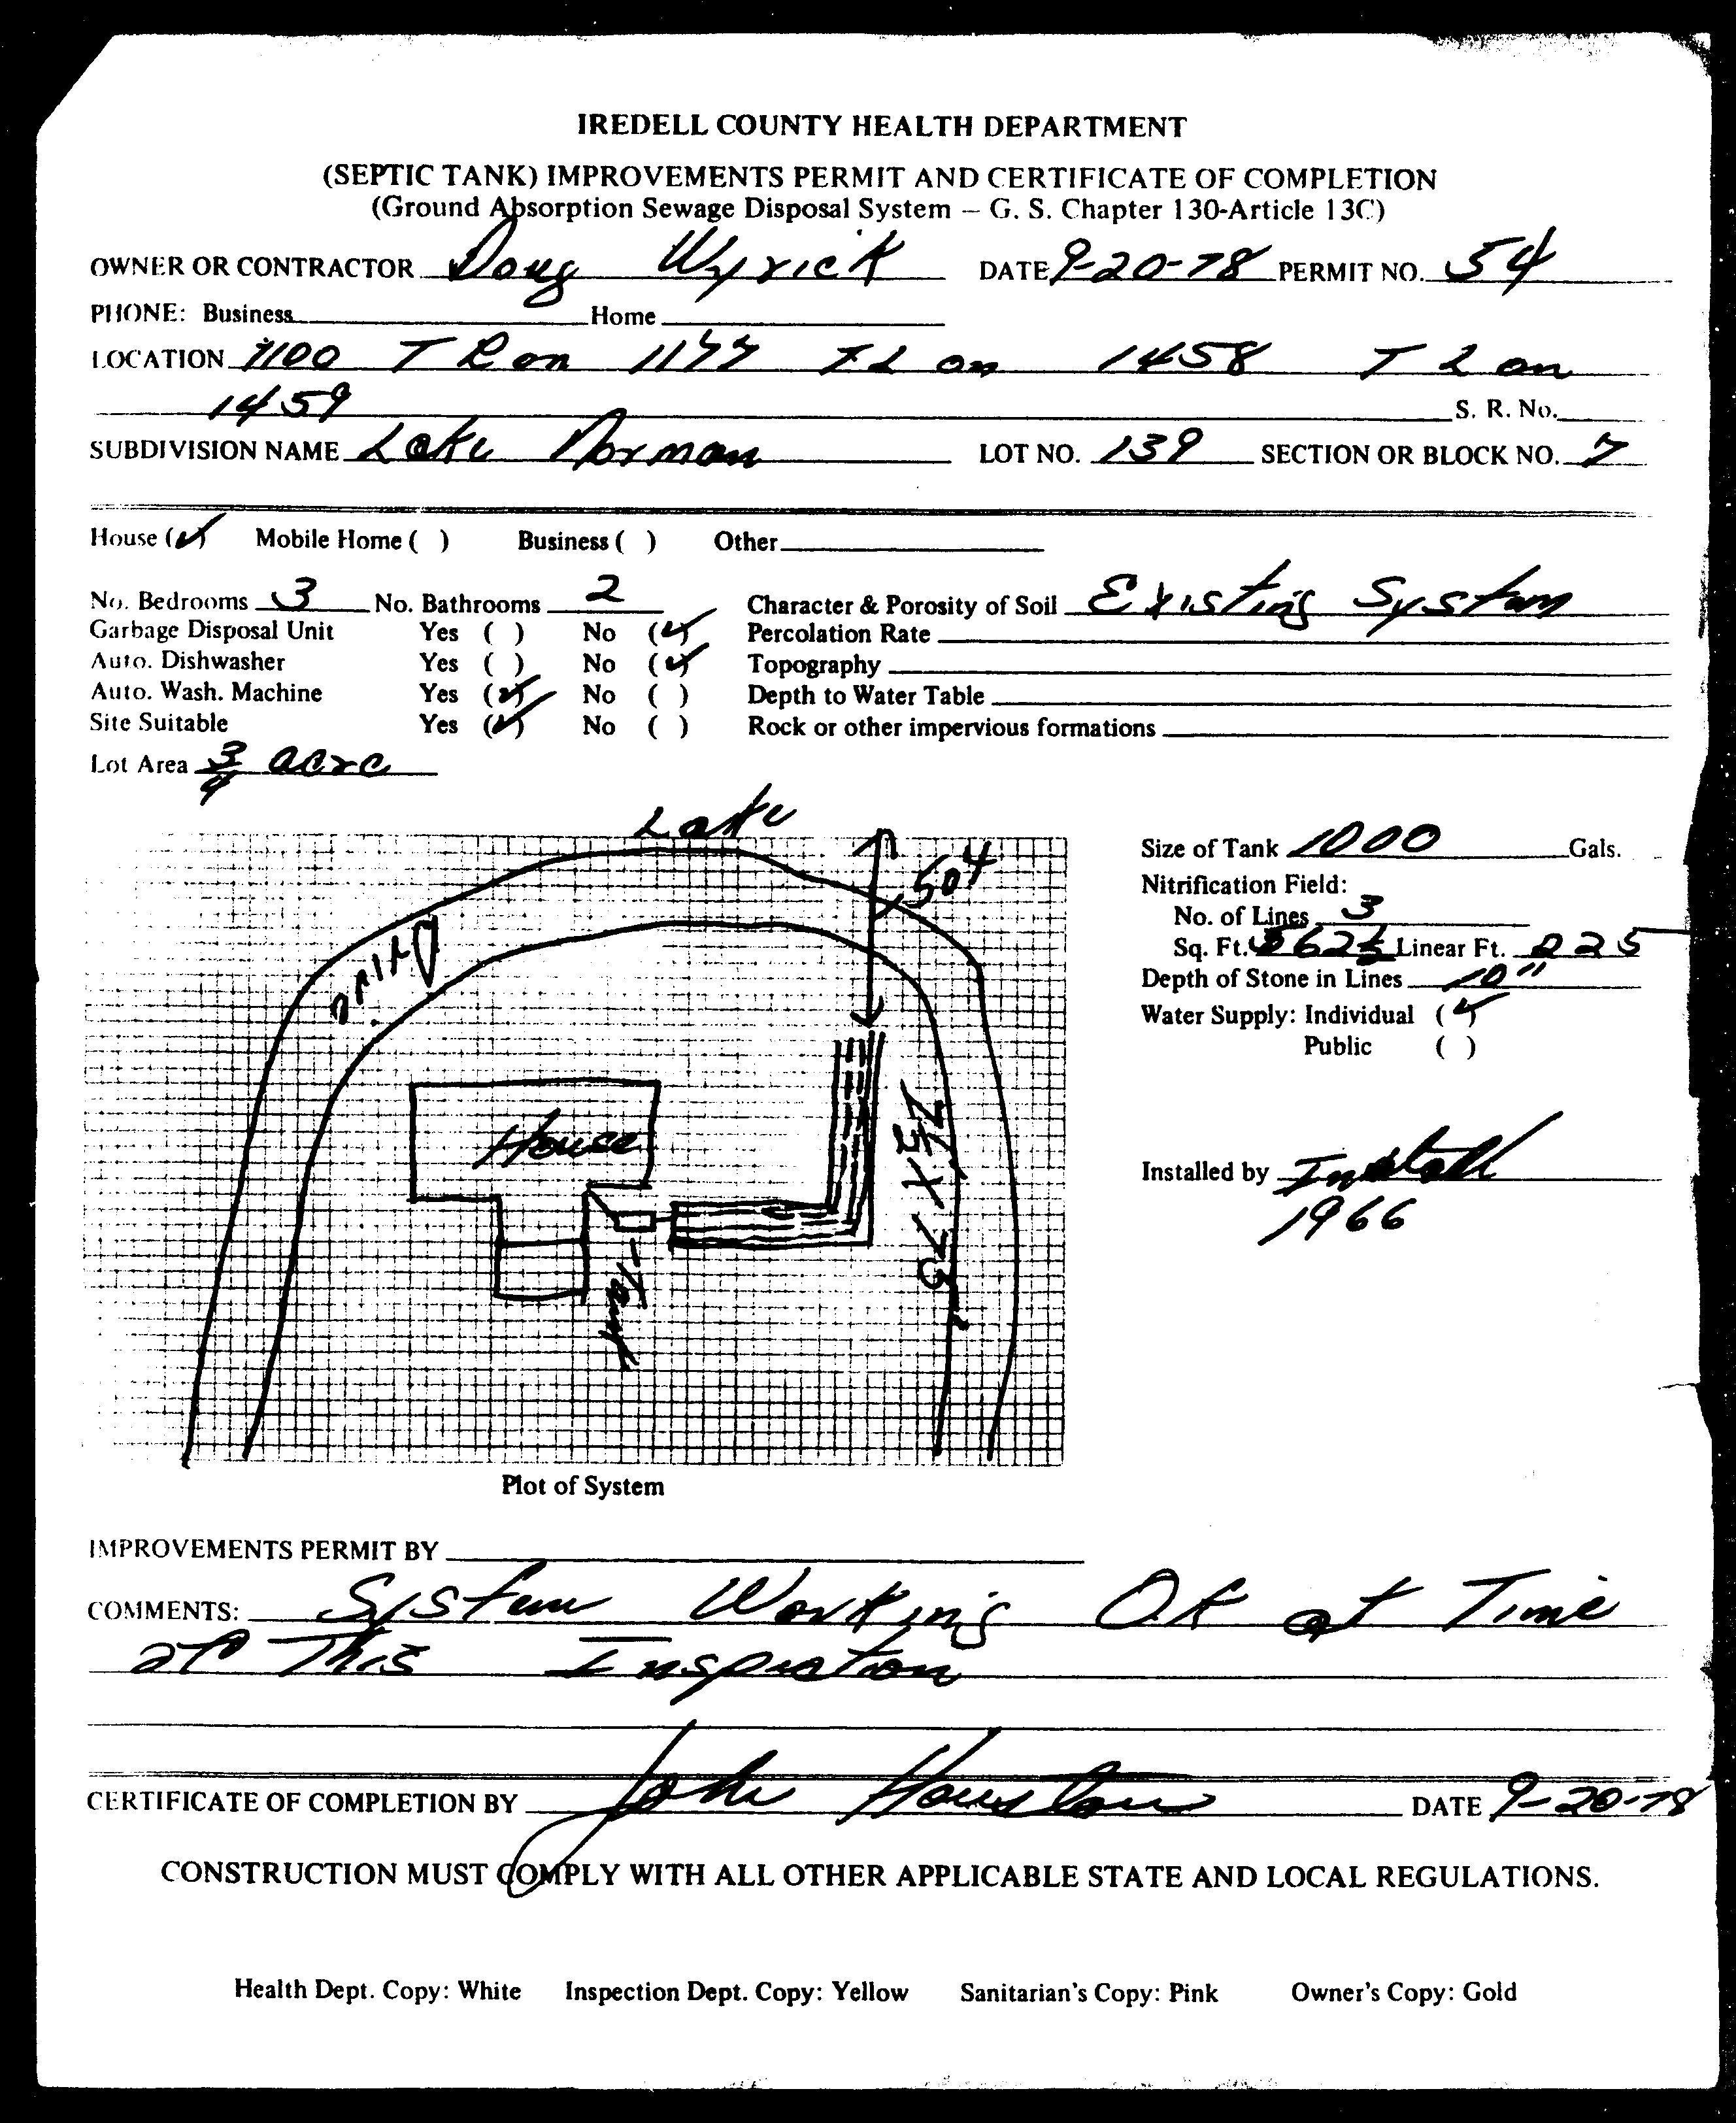 IREDELL COUNTY HEALTH DEPARTMENT
(SEPTIC TANK) IMPROVEMENTS PERMIT AND CERTIFICATE OF COMPLETION
(Ground Absorption Sewage Disposal System – G. S. Chapter 130-Article 13C)
OWNER OR CONTRACTOR Doug Wyrick DATE 9-20-78 PERMIT NO. 54
PHONE: Business Home
LOCATION 1100 T R on 1177 T L on 1458 T L on
1459 S. R. No.
SUBDIVISION NAME Lake Norman LOT NO. 139 SECTION OR BLOCK NO. 7
House (✓) Mobile Home ( ) Business ( ) Other
No. Bedrooms 3 No. Bathrooms 2 Character & Porosity of Soil Existing System
Garbage Disposal Unit Yes ( ) No (✓) Percolation Rate
Auto. Dishwasher Yes ( ) No (✓) Topography
Auto. Wash. Machine Yes (✓) No ( ) Depth to Water Table
Site Suitable Yes (✓) No ( ) Rock or other impervious formations
Lot Area 3/4 acre
Lake
50
Drive
House
3 X 75
Size of Tank 1000 Gals.
Nitrification Field:
No. of Lines 3
Sq. Ft. Linear Ft. 225
Depth of Stone in Lines 10"
Water Supply: Individual (✓)
Public ( )
Installed by Install
1966
Plot of System
IMPROVEMENTS PERMIT BY
COMMENTS: System Working OK at Time
of This Inspection
CERTIFICATE OF COMPLETION BY John Houston DATE 9-20-78
CONSTRUCTION MUST COMPLY WITH ALL OTHER APPLICABLE STATE AND LOCAL REGULATIONS.
Health Dept. Copy: White Inspection Dept. Copy: Yellow Sanitarian's Copy: Pink Owner's Copy: Gold